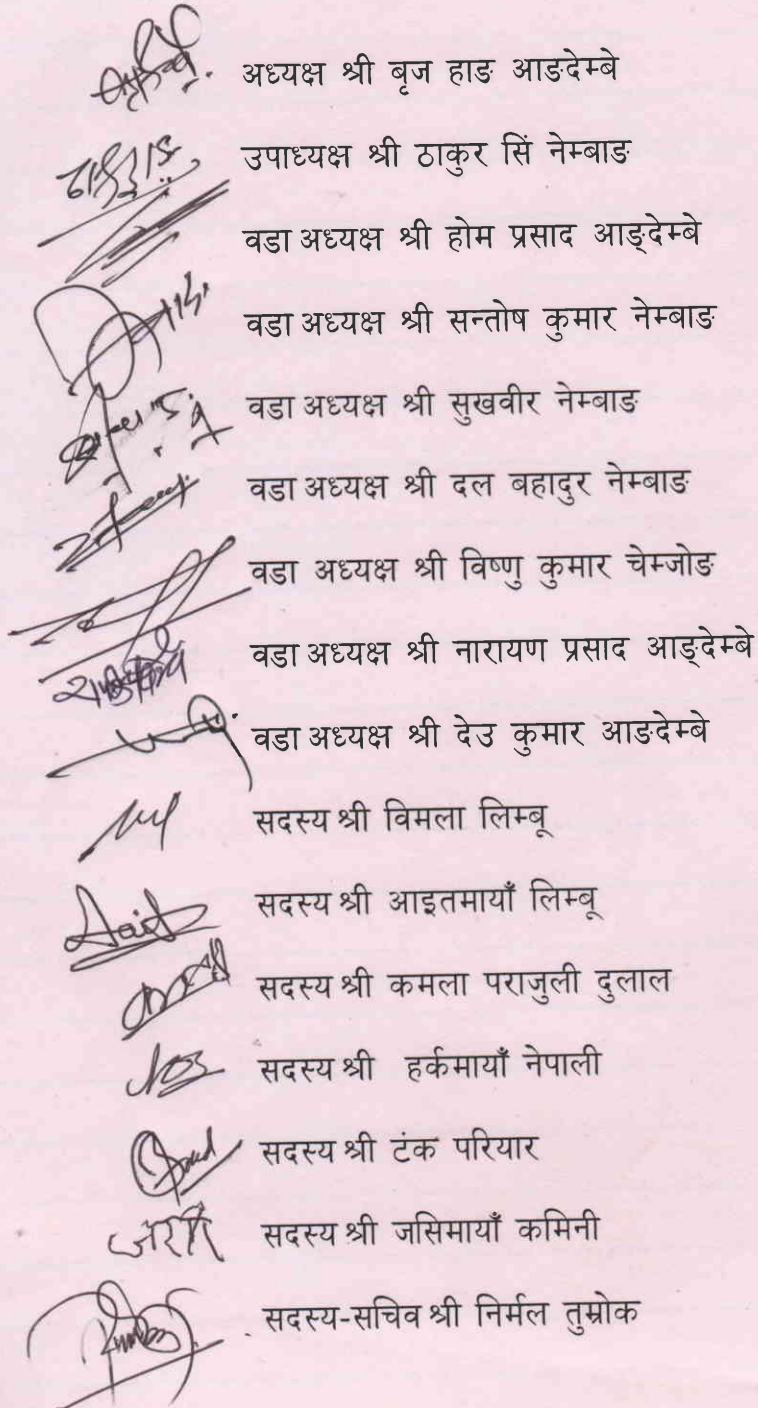 अध्यक्ष श्री बृज हाङ आङदेम्बे
उपाध्यक्ष श्री ठाकुर सिं नेम्बाङ
वडा अध्यक्ष श्री होम प्रसाद आङ्देम्बे
वडा अध्यक्ष श्री सन्तोष कुमार नेम्बाङ
वडा अध्यक्ष श्री सुखवीर नेम्बाङ
वडा अध्यक्ष श्री दल बहादुर नेम्बाङ
वडा अध्यक्ष श्री विष्णु कुमार चेम्जोङ
वडा अध्यक्ष श्री नारायण प्रसाद आङ्देम्बे
वडा अध्यक्ष श्री देउ कुमार आङदेम्बे
सदस्य श्री विमला लिम्बू
सदस्य श्री आइतमायाँ लिम्बू
सदस्य श्री कमला पराजुली दुलाल
सदस्य श्री हर्कमायाँ नेपाली
सदस्य श्री टंक परियार
सदस्य श्री जसिमायाँ कमिनी
सदस्य-सचिव श्री निर्मल तुम्रोक